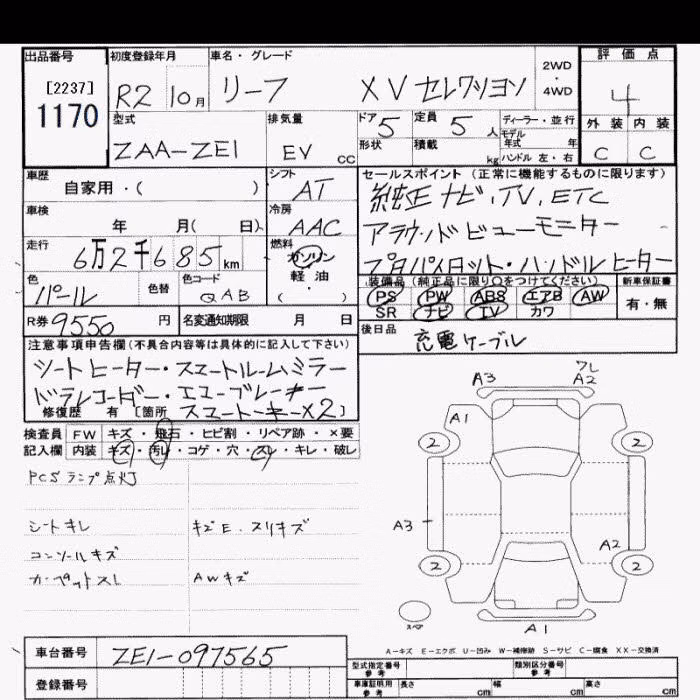 出品番号 初度登録年月 車名・グレード 2WD・4WD 評価点
[2237]
1170 R2 10月 リーフ XV セレクション 4
型式 排気量 ドア 5 定員 5人 ディーラー・並行 外装 内装
ZAA-ZE1 EV CC 形状 積載 kg モデル年式 年 ハンドル 左・右 C C
車歴 自家用・( ) シフト AT セールスポイント(正常に機能するものに限ります)
純正ナビ、TV、ETC
車検 年 月( 日) 冷房 AAC アラウンドビューモニター
走行 6万2千685km 燃料 ガソリン・軽油 ( ・ ) プロパイロット・ハンドルヒーター
色 パール 色替 色コード QAB 装備品(純正品に限り○をつけてください) 新車保証書
PS PW ABS エアB AW 有・無
SR ナビ TV カワ
R券 9550円 名変通知期限 月 日 後日品 充電ケーブル
注意事項申告欄(不具合内容等は具体的に記入して下さい)
シートヒーター・スマートルームミラー
ドラレコーダー・エマーブレーキー
修復歴 有 [箇所 スマートキーX2]
検査員 FW キズ・飛石・ヒビ割・リペア跡・×要
記入欄 内装 キズ・汚レ・コゲ・穴・スレ・キレ・破レ
PCSランプ点灯
シートキレ キズE.スリキズ
コンソールキズ
カーペットスレ AWキズ
A3 ワレ A2
A1
2 2
A3
A2
2 2
スペア A1
A-キズ E-エクボ U-凹み W-補修跡 S-サビ C-腐食 XX-交換済
車台番号 ZE1-097565
型式指定番号 参考 類別区分番号 参考
登録番号 車庫証明用 参考 長さ cm 幅 cm 高さ cm